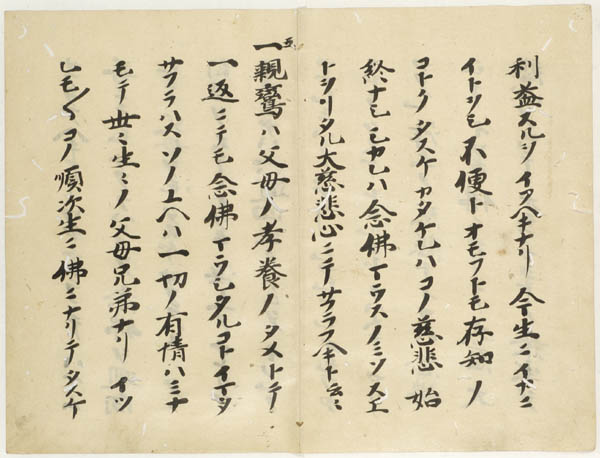 利益スルヲイフヘキナリ 今生ニイカニ
イトヲシ不便トオモフトモ存知ノ
コトクタスケカタケレハコノ慈悲始
終ナシシカレハ念佛マウスノミソスエ
トヲリタル大慈悲心ニテサフラフヘキト云々
五
一親鸞ハ父母ノ孝養ノタメトテ
一返ニテモ念佛マウシタルコトイマタ
サフラハスソノユヘハ一切ノ有情ハミナ
モテ世々生々ノ父母兄弟ナリイツ
レモ〱コノ順次生ニ佛ニナリテタスケ